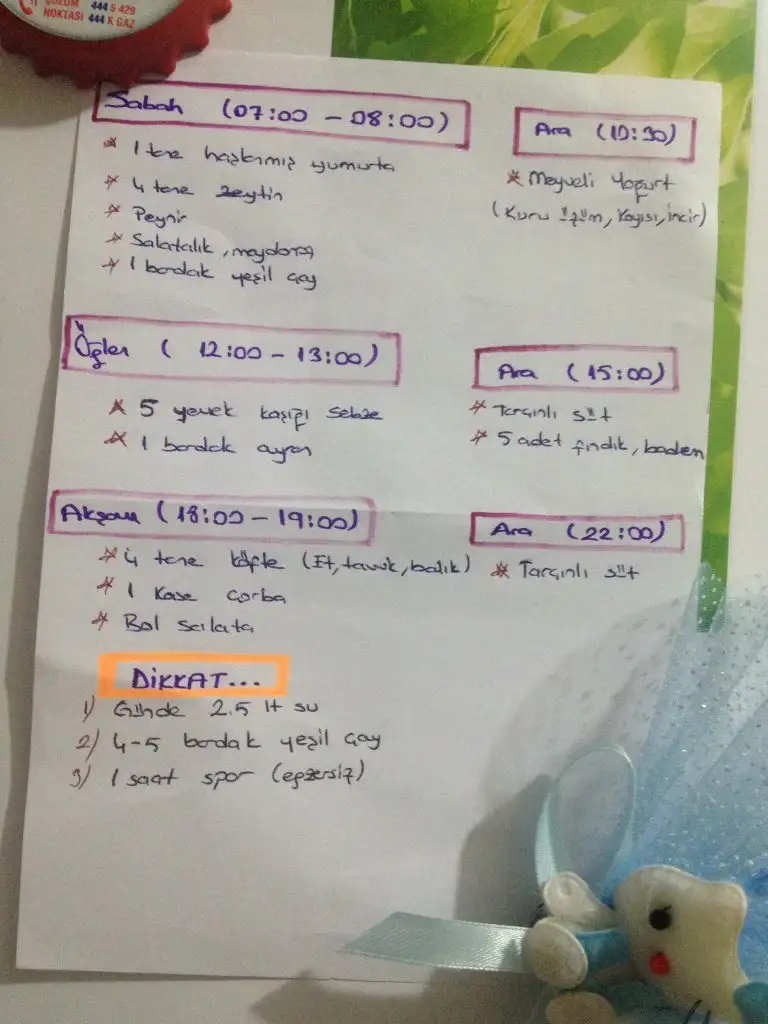 ÇÖZÜM 444 5 429
NOKTASI 444 K GAZ
Sabah (07:00 - 08:00)
* 1 tane haşlanmış yumurta
* 4 tane zeytin
* Peynir
* Salatalık, maydanoz
* 1 bardak yeşil çay
Ara (10:30)
* Meyveli Yoğurt
(Kuru üzüm, Kayısı, incir)
Öğlen ( 12:00 - 13:00)
* 5 yemek kaşığı sebze
* 1 bardak ayran
Ara (15:00)
* Tarçınlı süt
* 5 adet fındık, badem
Akşam (18:00 - 19:00)
* 4 tane köfte (Et, tavuk, balık)
* 1 Kase çorba
* Bol salata
Ara (22:00)
* Tarçınlı süt
DİKKAT...
1) Günde 2.5 lt su
2) 4-5 bardak yeşil çay
3) 1 saat spor (egzersiz)